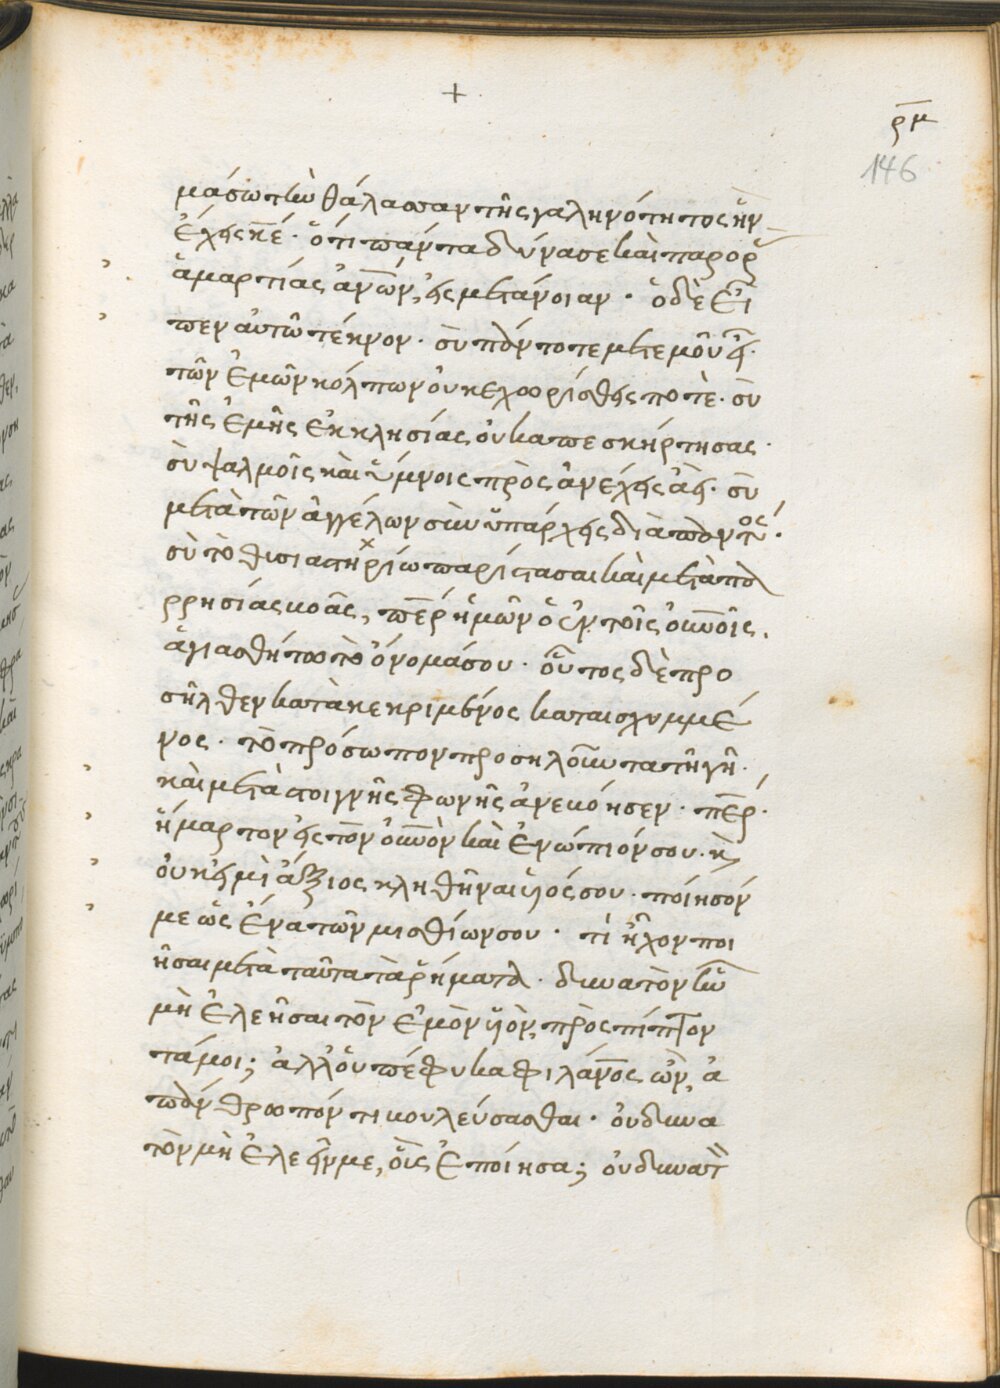 +
ρμ
146
μάσω τὴν θάλασσαν τῆς γαληνότητος ἣν
ἔχης κε̅. ὅτι πάντα δύνασε καὶ παρορᾶς
ἁμαρτίας ἀν̅ω̅ν, εἰς μετάνοιαν. ὁ δὲ εἶ
πεν αὐτῶ τέκνον. σὺ πάντοτε μετ ἐμοῦ εἶ.
τῶν ἐμῶν κόλπων οὐκ ἐχωρίσθης ποτὲ. σὺ
τῆς ἐμῆς ἐκκλησίας οὐκ ἀπεσκήρτησας.
σὺ ψαλμοῖς καὶ ὕμνοις πρὸς
μετὰ τῶν ἀγγέλων συνυπάρχης διὰ παντός.
σὺ τὸ θυσιαστηρίω παρίστασαι καὶ μετὰ πα
ρρησίας βοᾶς, π̅ε̅ρ ἡμῶν ὁ ἐν τοῖς οὐ̅νοῖς.
ἁγιασθήτω τὸ ὄνομά σου. οὗτος δὲ προ
σῆλθεν κατακεκριμένος καταισχυμμέ
νος. τὸ πρόσωπον προσηλοῦντα τῆ γῆ.
καὶ μετὰ στοιγνῆς φωνῆς ἀνεβόησεν. π̅ε̅ρ.
ἥμαρτον εἰς τὸν οὐ̅νὸν καὶ ἐνώπιόν σου. κ
οὐκ εἰμὶ ἄξιος κληθῆναι υἱός σου. ποίησόν
με ὡς ἕνα τῶν μισθίων σου. τί ἦχον ποι
ῆσαι μετὰ ταῦτα τὰ ῥήματα. δυνατὸν ἦν
μὴ ἐλεῆσαι τὸν ἐμὸν υἱὸν, πρὸς πίπτον
τά μοι; ἀλλ οὐ πέφυκα φιλάν̅ος ὢν, ἀ
πάνθρωπόν τι βουλεύσασθαι. οὐ δυνα
τὸν μὴ ἐλεεῖν με, οἷς ἐποίησα; οὐ δυνατ